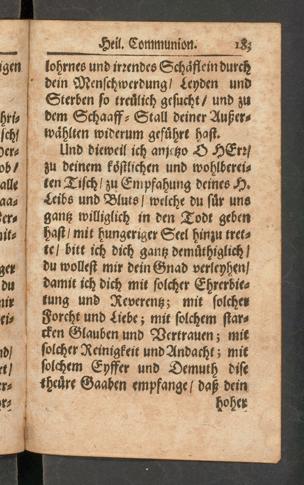 Heil. Communion. 183
lohrnes und irrendes Schäflein durch
dein Menschwerdung/ Leyden und
Sterben so treülich gesucht/ und zu
dem Schaaff-Stall deiner Außer-
wählten widerum geführt hast.
Und dieweil ich anjetzo O HErr/
zu deinem köstlichen und wohlberei-
ten Tisch/ zu Empfahung deines H.
Leibs und Bluts/ welche du für uns
gantz williglich in den Todt geben
hast/ mit hungeriger Seel hinzu tret-
te/ bitt ich dich gantz demüthiglich/
du wollest mir dein Gnad verleyhen/
damit ich dich mit solcher Ehrerbie-
tung und Reverentz; mit solcher
Forcht und Liebe; mit solchem star-
cken Glauben und Vertrauen; mit
solcher Reinigkeit und Andacht; mit
solchem Eyffer und Demuth dise
theüre Gaaben empfange/ daß dein
hoher